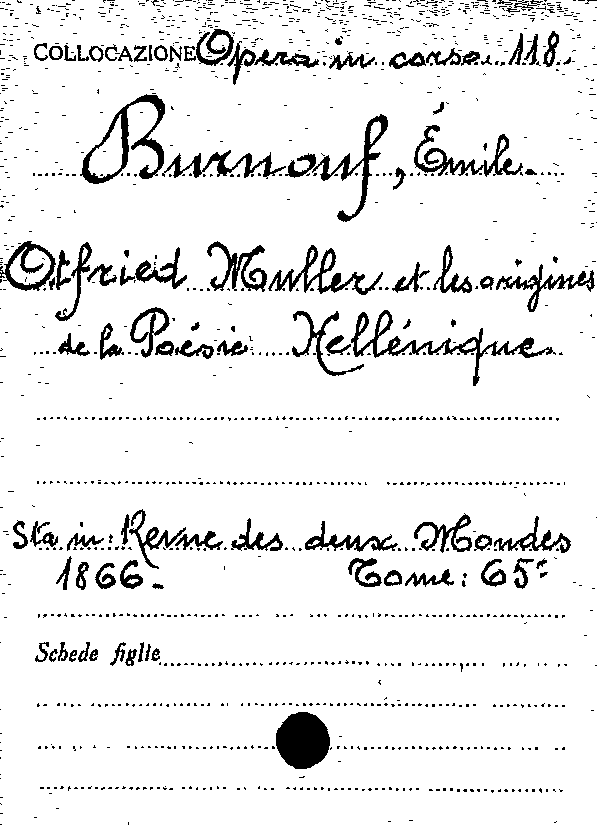 COLLOCAZIONE Opera in corso. 118.
Burnouf, Émile.
Otfried Muller et les origines
de la Poésie Hellénique.
Sta in: Revue des deux Mondes
1866. Tome: 65°
Schede figlie